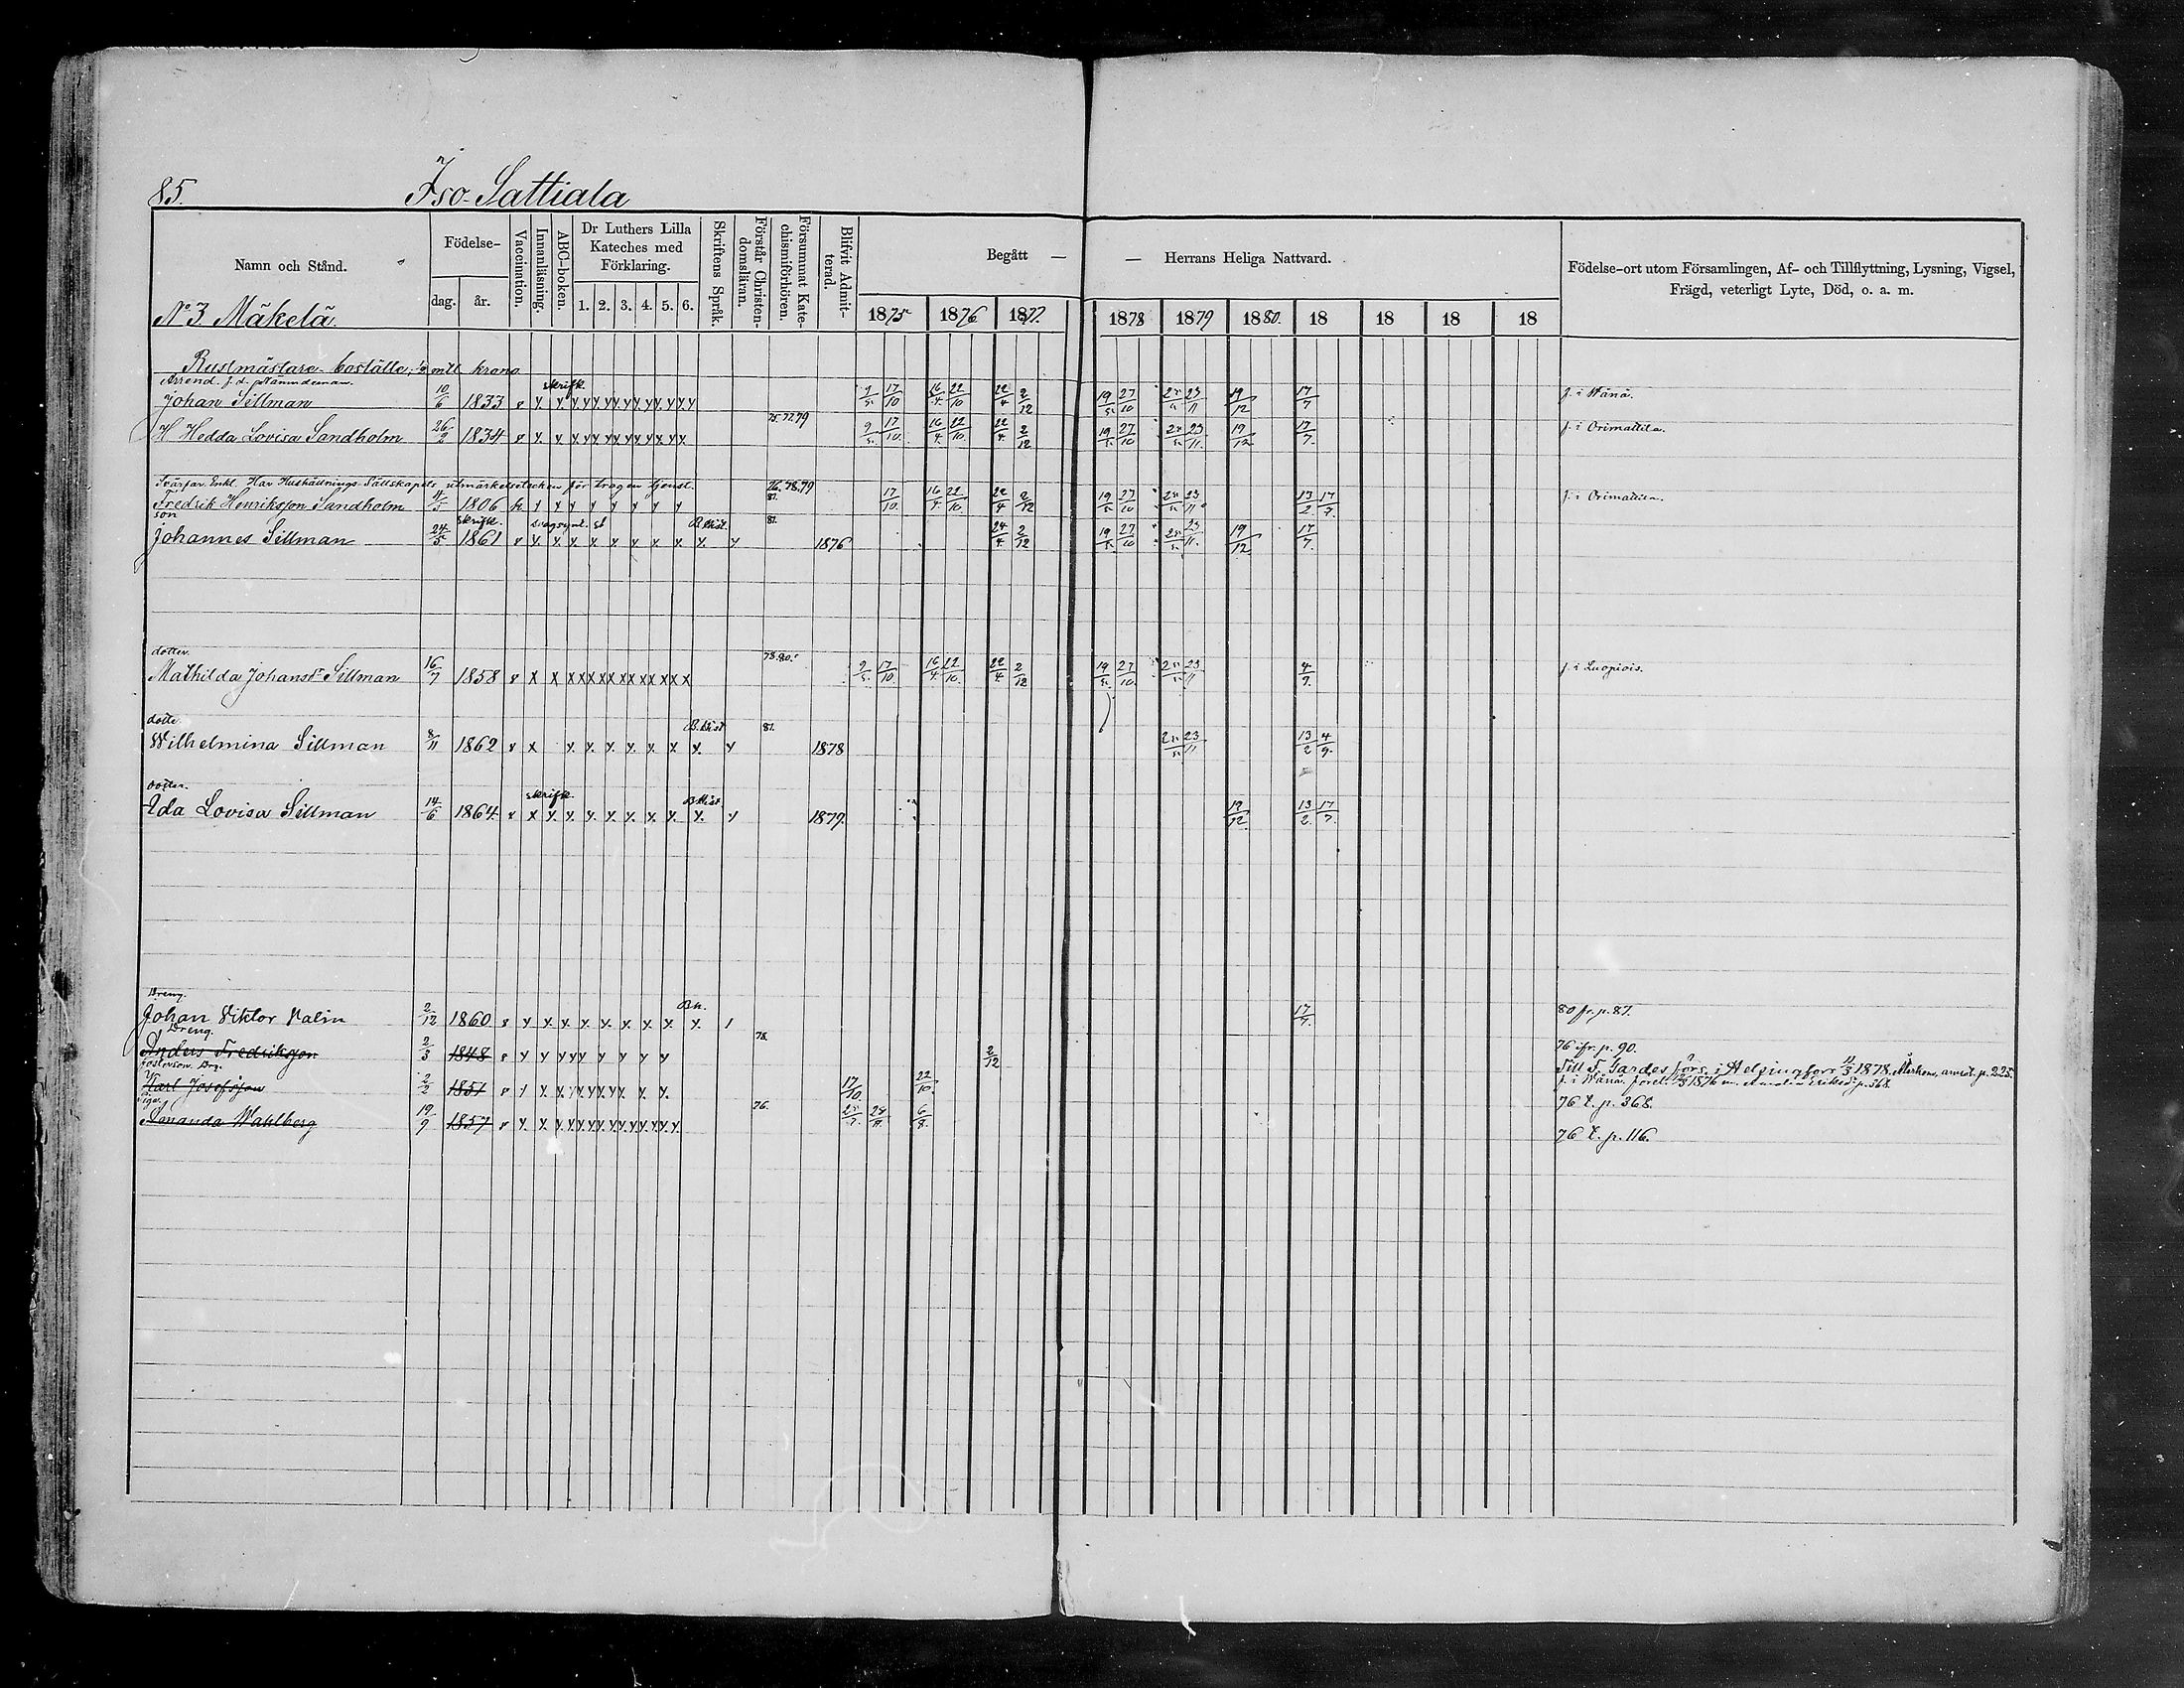 85. Iso-Sattiala
Namn och Stånd.
Födelse-
dag. år.
Vaccination.
Innanläsning.
ABC-boken.
Dr Luthers Lilla Kateches med Förklaring.
1. 2. 3. 4. 5. 6.
Skriftens Språk.
Förstår Christendomsläran.
Försummat Katechismiförhören.
Blifvit Admitterad.
Begått — — Herrans Heliga Nattvard.
1875 1876 1877. 1878 1879 1880. 18 18 18 18
Födelse-ort utom Församlingen, Af- och Tillflyttning, Lysning, Vigsel,
Frägd, veterligt Lyte, Död, o. a. m.
No 3 Mäkelä
Rustmästare-boställe, mtl krono
Arrend. f. d. Nämndeman.
Johan Sillman 10/6 1833 skrifk. 9/5 17/10 16/4 22/10 22/4 2/12 19/5 27/10 25/5 23/11 19/12 17/7 f. i Wånå.
H Hedda Lovisa Sandholm 26/2 1834 75.77.79 9/5 17/10 16/4 22/10 22/4 2/12 19/5 27/10 25/5 23/11 19/12 17/7 f. i Orimattila.
Svärfar Enkl. Har Hushållnings-Sällskapets utmärkelsetecken för trogen tjenst.
Fredrik Henriksson Sandholm 4/5 1806 76.78.79 81. 17/10 16/4 22/10 22/4 2/12 19/5 27/10 25/5 23/11 13/2 17/7 f. i Orimattila.
son
Johannes Sillman 24/5 1861 skrifk. svagsynt. B. Hist. 81. 1876 24/4 2/12 19/5 27/10 25/5 23/11 19/12 17/7
dotter.
Mathilda Johansdr Sillman 16/7 1858 78.80. 9/5 17/10 16/4 22/10 22/4 2/12 19/5 27/10 25/5 23/11 4/9 f. i Luopiois.
dotter
Wilhelmina Sillman 8/11 1862 B. Hist 81. 1878 25/5 23/11 13/2 4/9
dotter.
Ida Lovisa Sillman 14/6 1864 skrifk. B Hist 1879. 19/12 13/2 17/7
Dreng.
Johan Viktor Valin 2/12 1860 B. h. 17/7 80 fr. p. 87.
Dreng.
Anders Fredriksson 2/3 1848 78. 2/12 76 ifr. p. 90.
Till F. Gardes förs. i Helsingfors 4/3 1878.
Karl Josefsson 2/2 1851 17/10 22/10 f. i Wånå. p. 368.
76 t. p. 368.
Piga.
Amanda Wahlberg 19/9 1857 76. 6/8 76 t. p. 116.